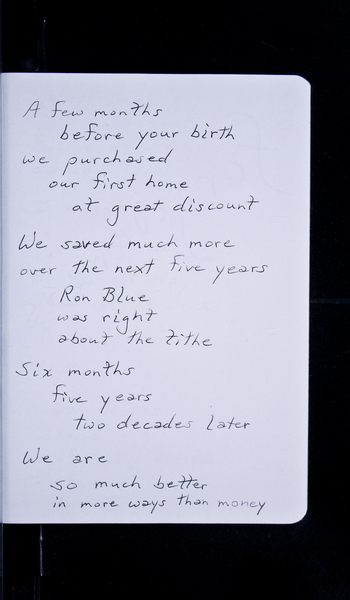 A few months
before your birth
we purchased
our first home
at great discount
We saved much more
over the next five years
Ron Blue
was right
about the tithe
Six months
five years
two decades later
We are
so much better
in more ways than money